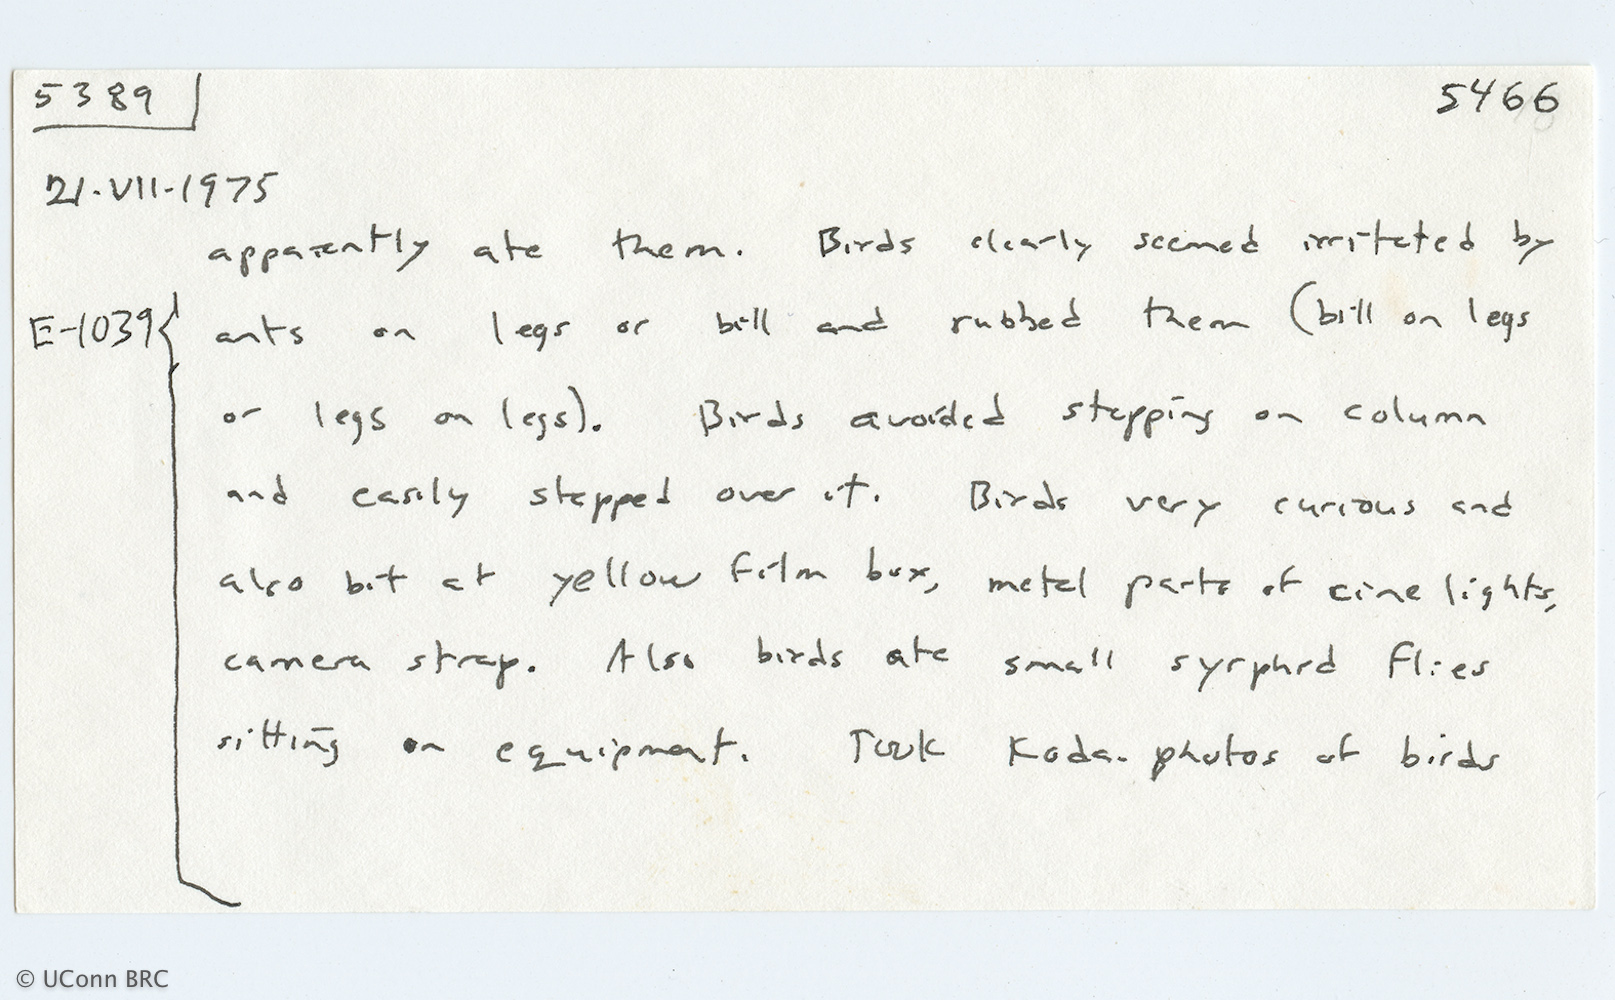 5389
5466
21-VII-1975
apparently ate them. Birds clearly seemed irritated by
E-1039 { ants on legs or bill and rubbed them (bill on legs
or legs on legs). Birds avoided stepping on column
and easily stepped over it. Birds very curious and
also bit at yellow film box, metal parts of cine lights,
camera strap. Also birds ate small syrphid flies
sitting on equipment. Took Koda. photos of birds
© UConn BRC